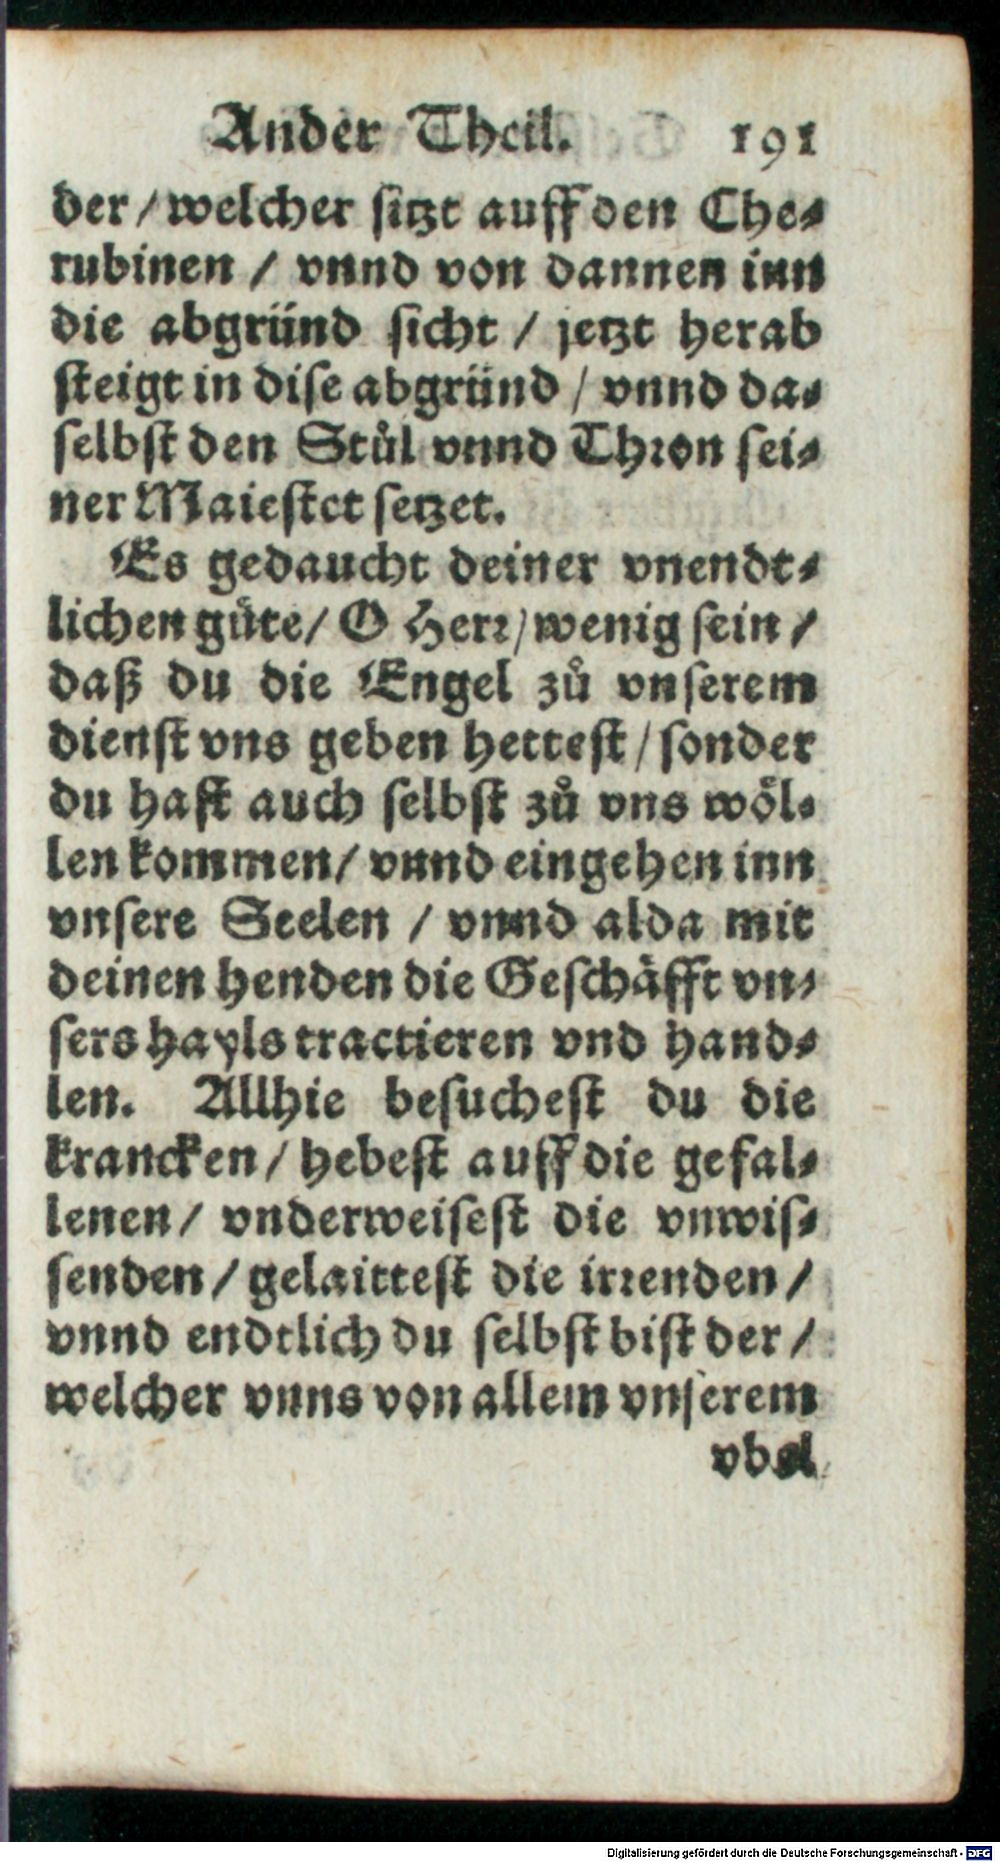 Ander Theil. 191
der / welcher sitzt auff den Che-
rubinen / vnnd von dannen inn
die abgründ sicht / jetzt herab
steigt in dise abgründ / vnnd da-
selbst den Stůl vnnd Thron sei-
ner Maiestet setzet.
Es gedaucht deiner vnendt-
lichen güte / O Herr / wenig sein /
daß du die Engel zů vnserem
dienst vns geben hettest / sonder
du hast auch selbst zů vns wöl-
len kommen / vnnd eingehen inn
vnsere Seelen / vnnd alda mit
deinen henden die Geschäfft vn-
sers hayls tractieren vnd hand-
len. Allhie besuchest du die
krancken / hebest auff die gefal-
lenen / vnderweisest die vnwis-
senden / gelaittest die irrenden /
vnnd endtlich du selbst bist der /
welcher vnns von allem vnserem
vbel
Digitalisierung gefördert durch die Deutsche Forschungsgemeinschaft - DFG